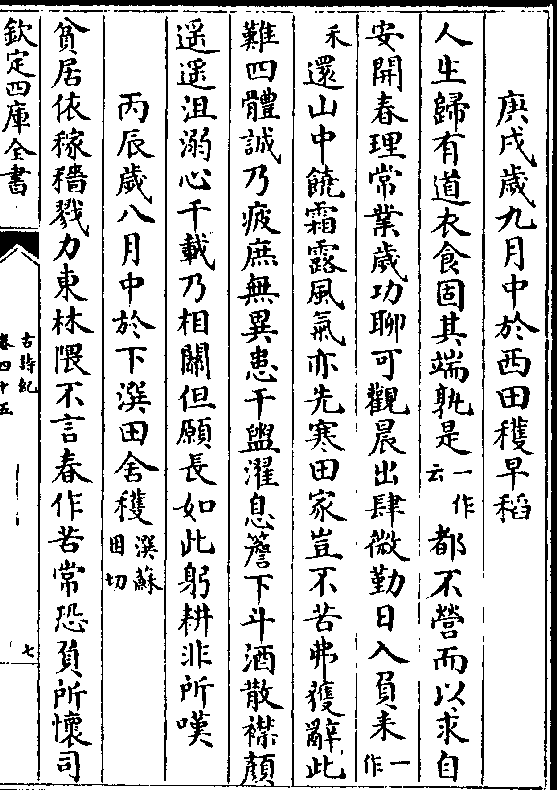 庚戌歲九月中於西田穫早稻
人生歸有道衣食固其端孰是一作云都不營而以求自
安開春理常業歲功聊可觀晨出肆微勤日入負耒一作
禾還山中饒霜露風氣亦先寒田家豈不苦弗獲辭此
難四體誠乃疲庶無異患干盥濯息簷下斗酒散襟顏
遥遥沮溺心千載乃相關但願長如此躬耕非所嘆
丙辰歲八月中於下潠田舍穫潠蘇困切
貧居依稼穡戮力東林隈不言春作苦常恐負所懷司
欽定四庫全書
古詩紀
卷四十五
七